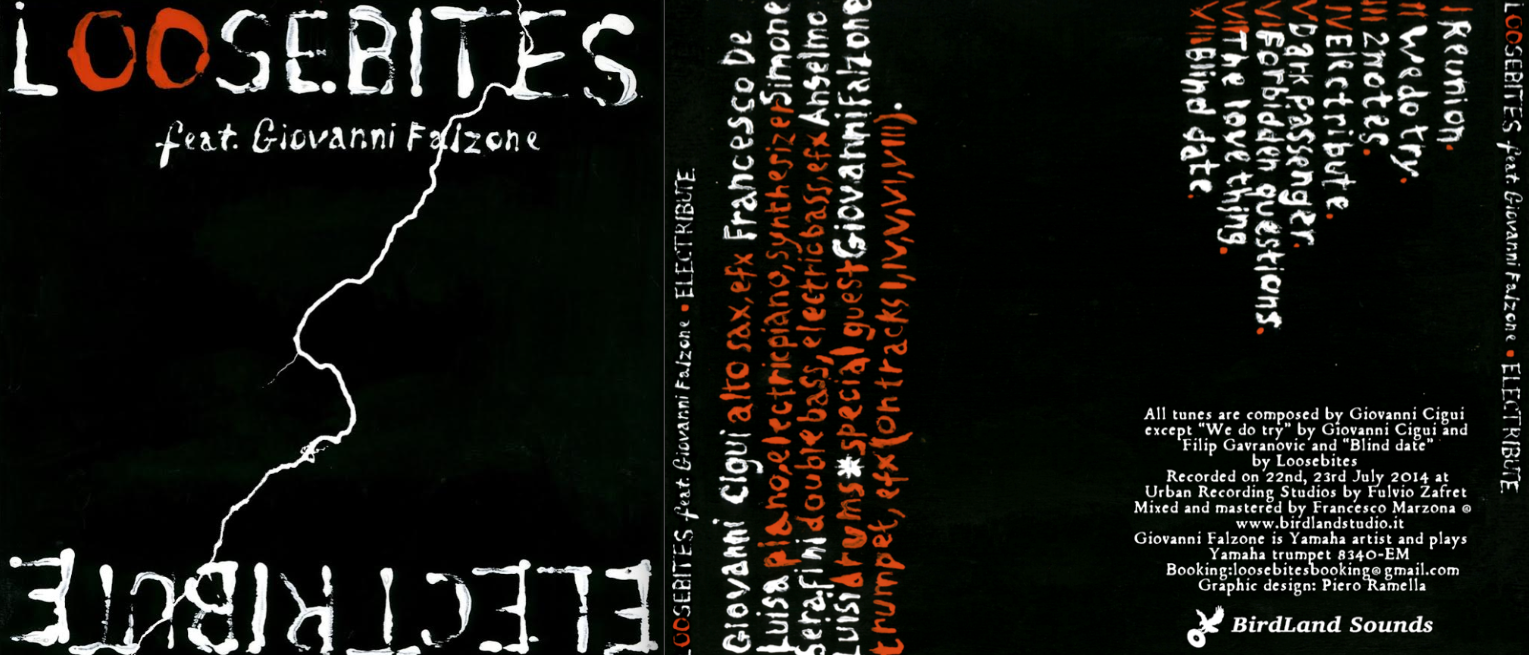 LOOSEBITES
feat. Giovanni Falzone
ELECTRIBUTE
LOOSEBITES feat. Giovanni Falzone • ELECTRIBUTE
Giovanni Cigui alto sax, efx Francesco De
Luisa piano, electricpiano, synthesizer Simone
Serafini doublebass, electricbass, efx Anselmo
Luisi drums * special guest Giovanni Falzone
trumpet, efx (on tracks I, IV, V, VI, VIII).
I Reunion.
II We do try.
III 2notes.
IV Electribute.
V Dark Passenger.
VI Forbidden questions.
VII The love thing.
VIII Blind date.
All tunes are composed by Giovanni Cigui
except “We do try” by Giovanni Cigui and
Filip Gavranovic and “Blind date”
by Loosebites
Recorded on 22nd, 23rd July 2014 at
Urban Recording Studios by Fulvio Zafret
Mixed and mastered by Francesco Marzona @
www.birdlandstudio.it
Giovanni Falzone is Yamaha artist and plays
Yamaha trumpet 8340-EM
Booking:loosebitesbooking@gmail.com
Graphic design: Piero Ramella
BirdLand Sounds
LOOSEBITES feat. Giovanni Falzone • ELECTRIBUTE